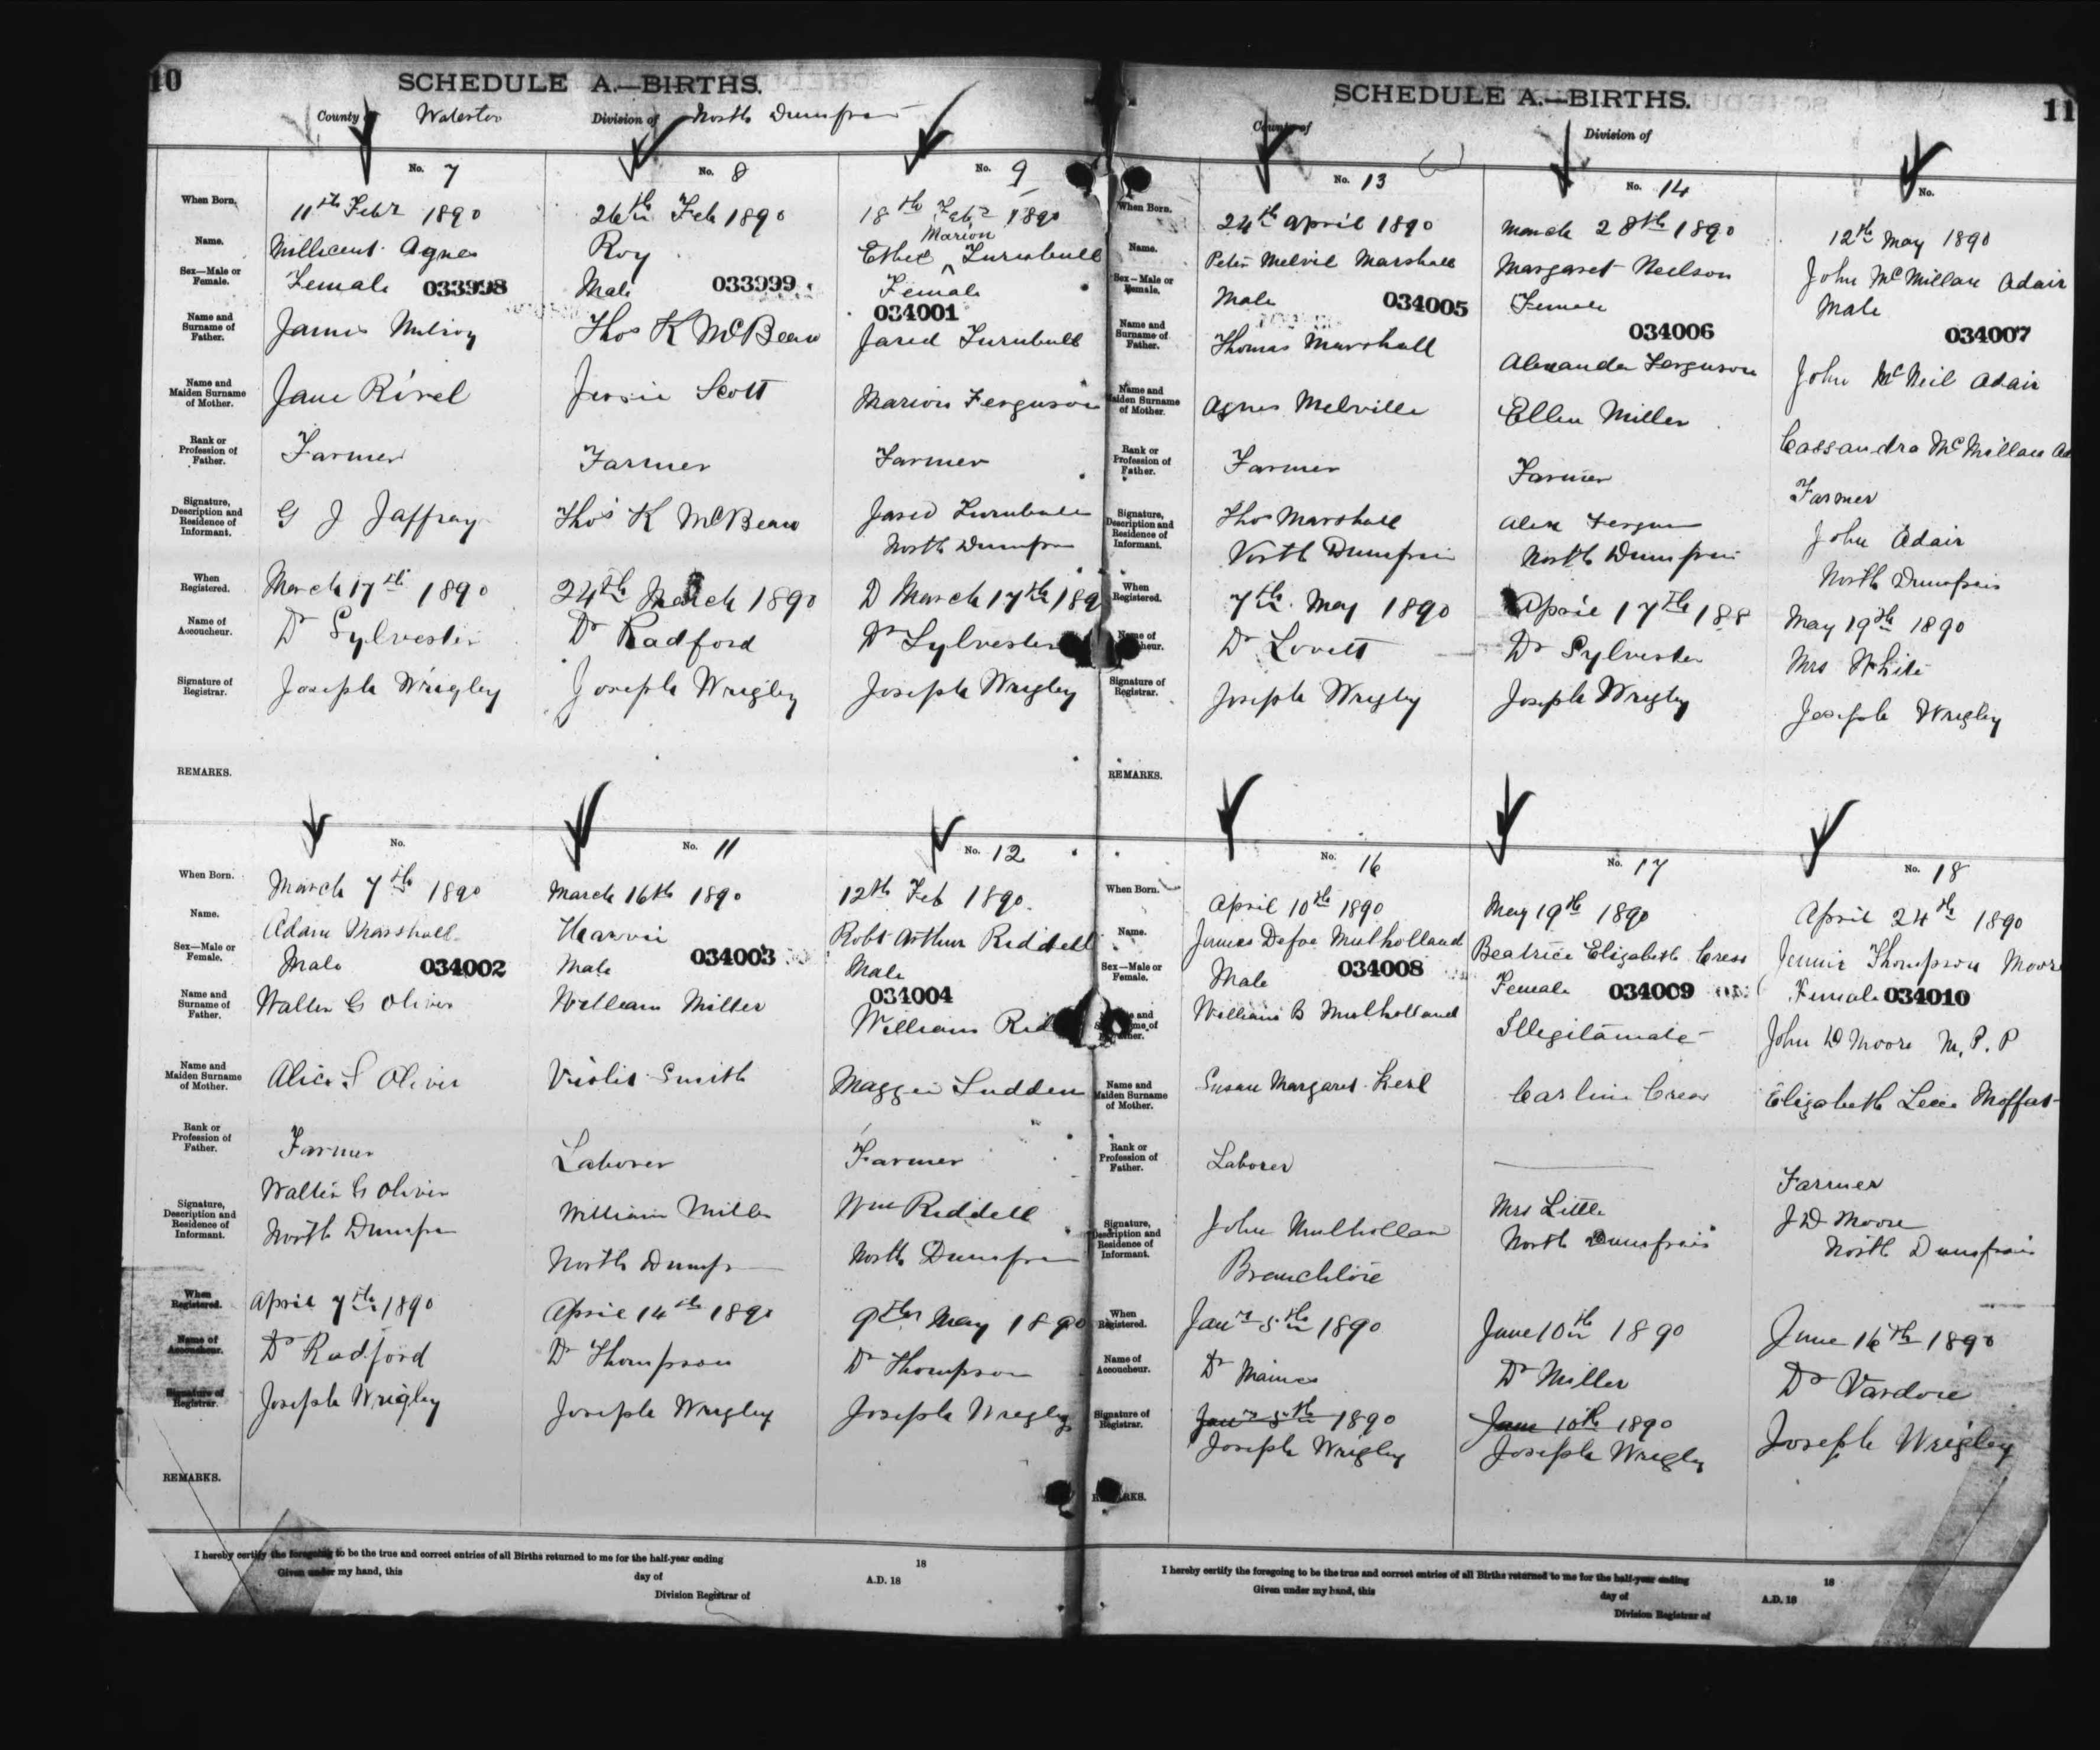 10
SCHEDULE A.—BIRTHS.
County of Waterloo Division of North Dumfries
No. 7
When Born. 11th Feb'r 1890
Name. Millicent Agnes
Sex—Male or Female. Female 033998
Name and Surname of Father. James Milroy
Name and Maiden Surname of Mother. Jane
Rank or Profession of Father. Farmer
Signature, Description and Residence of Informant. G J Jaffray
When Registered. March 17th 1890
Name of Accoucheur. Dr Sylvester
Signature of Registrar. Joseph Wrigley
REMARKS.
No. 8
26th Feb 1890
Roy
Male 033999
Thos K McBean
Jessie Scott
Farmer
Thos K McBean
24th March 1890
Dr Radford
Joseph Wrigley
No. 9
18th Feb'r 1890
Marion
Ethel ^ Turnbull
Female
034001
Jared Turnbull
Marion Ferguson
Farmer
Jared Turnbull
North Dumfr
D March 17th 189
Dr Sylvester
Joseph Wrigley
No.
When Born. March 7th 1890
Name. Adam Marshall
Sex—Male or Female. Male 034002
Name and Surname of Father. Walter G Oliver
Name and Maiden Surname of Mother. Alice S Oliver
Rank or Profession of Father. Farmer
Signature, Description and Residence of Informant. Walter G Oliver
North Dumfr
When Registered. April 7th 1890
Name of Accoucheur. Dr Radford
Signature of Registrar. Joseph Wrigley
REMARKS.
No. 11
March 16th 1890
Harvie
Male 034003
William Miller
Violit Smith
Laborer
William Miller
North Dumfr
April 14th 1890
Dr Thompson
Joseph Wrigley
No. 12
12th Feb 1890.
Robt Arthur Riddell
Male
034004
William Rid
Maggie Sudden
Farmer
Wm Riddell
North Dumfr
9th May 1890
Dr Thompson
Joseph Wrigley
I hereby certify the foregoing to be the true and correct entries of all Births returned to me for the half-year ending 18
Given under my hand, this day of A.D. 18
Division Registrar of
SCHEDULE A.—BIRTHS.
11
County of Division of
No. 13
When Born. 24th April 1890
Name. Peter Melvil Marshall
Sex—Male or Female. Male 034005
Name and Surname of Father. Thomas Marshall
Name and Maiden Surname of Mother. Agnes Melville
Rank or Profession of Father. Farmer
Signature, Description and Residence of Informant. Thos Marshall
North Dumfries
When Registered. 7th May 1890
Name of Accoucheur. Dr Lovett
Signature of Registrar. Joseph Wrigley
REMARKS.
No. 14
March 28th 1890
Margaret Neilson
Female
034006
Alexander Ferguson
Ellen Miller
Farmer
Alex Fergus
North Dumfries
April 17th 188
Dr Sylvester
Joseph Wrigley
No.
12th May 1890
John McMillan Adair
Male
034007
John McNeil Adair
Cassandra McMillan Ad
Farmer
John Adair
North Dumfries
May 19th 1890
Mrs White
Joseph Wrigley
No. 16
When Born. April 10th 1890
Name. James Defoe Mulholland
Sex—Male or Female. Male 034008
William B Mulholland
Name and Maiden Surname of Mother. Susan Margaret
Rank or Profession of Father. Laborer
Signature, Description and Residence of Informant. John Mulhollan
When Registered. Jan'y 5th 1890
Name of Accoucheur. Dr
Signature of Registrar. Jan'y 5th 1890
Joseph Wrigley
No. 17
May 19th 1890
Beatrice Elizabeth Cress
Female 034009
Illegitamate
Carline Cress
Mrs Little
North Dumfrais
June 10th 1890
Dr Miller
June 10th 1890
Joseph Wrigley
No. 18
April 24th 1890
Jennie Thompson Moore
Female 034010
John D Moore M. P. P
Elizabeth Moffat
Farmer
J D Moore
North Dumfrais
June 16th 1890
Dr Vardon
Joseph Wrigley
I hereby certify the foregoing to be the true and correct entries of all Births returned to me for the half-year ending 18
Given under my hand, this day of A.D. 18
Division Registrar of